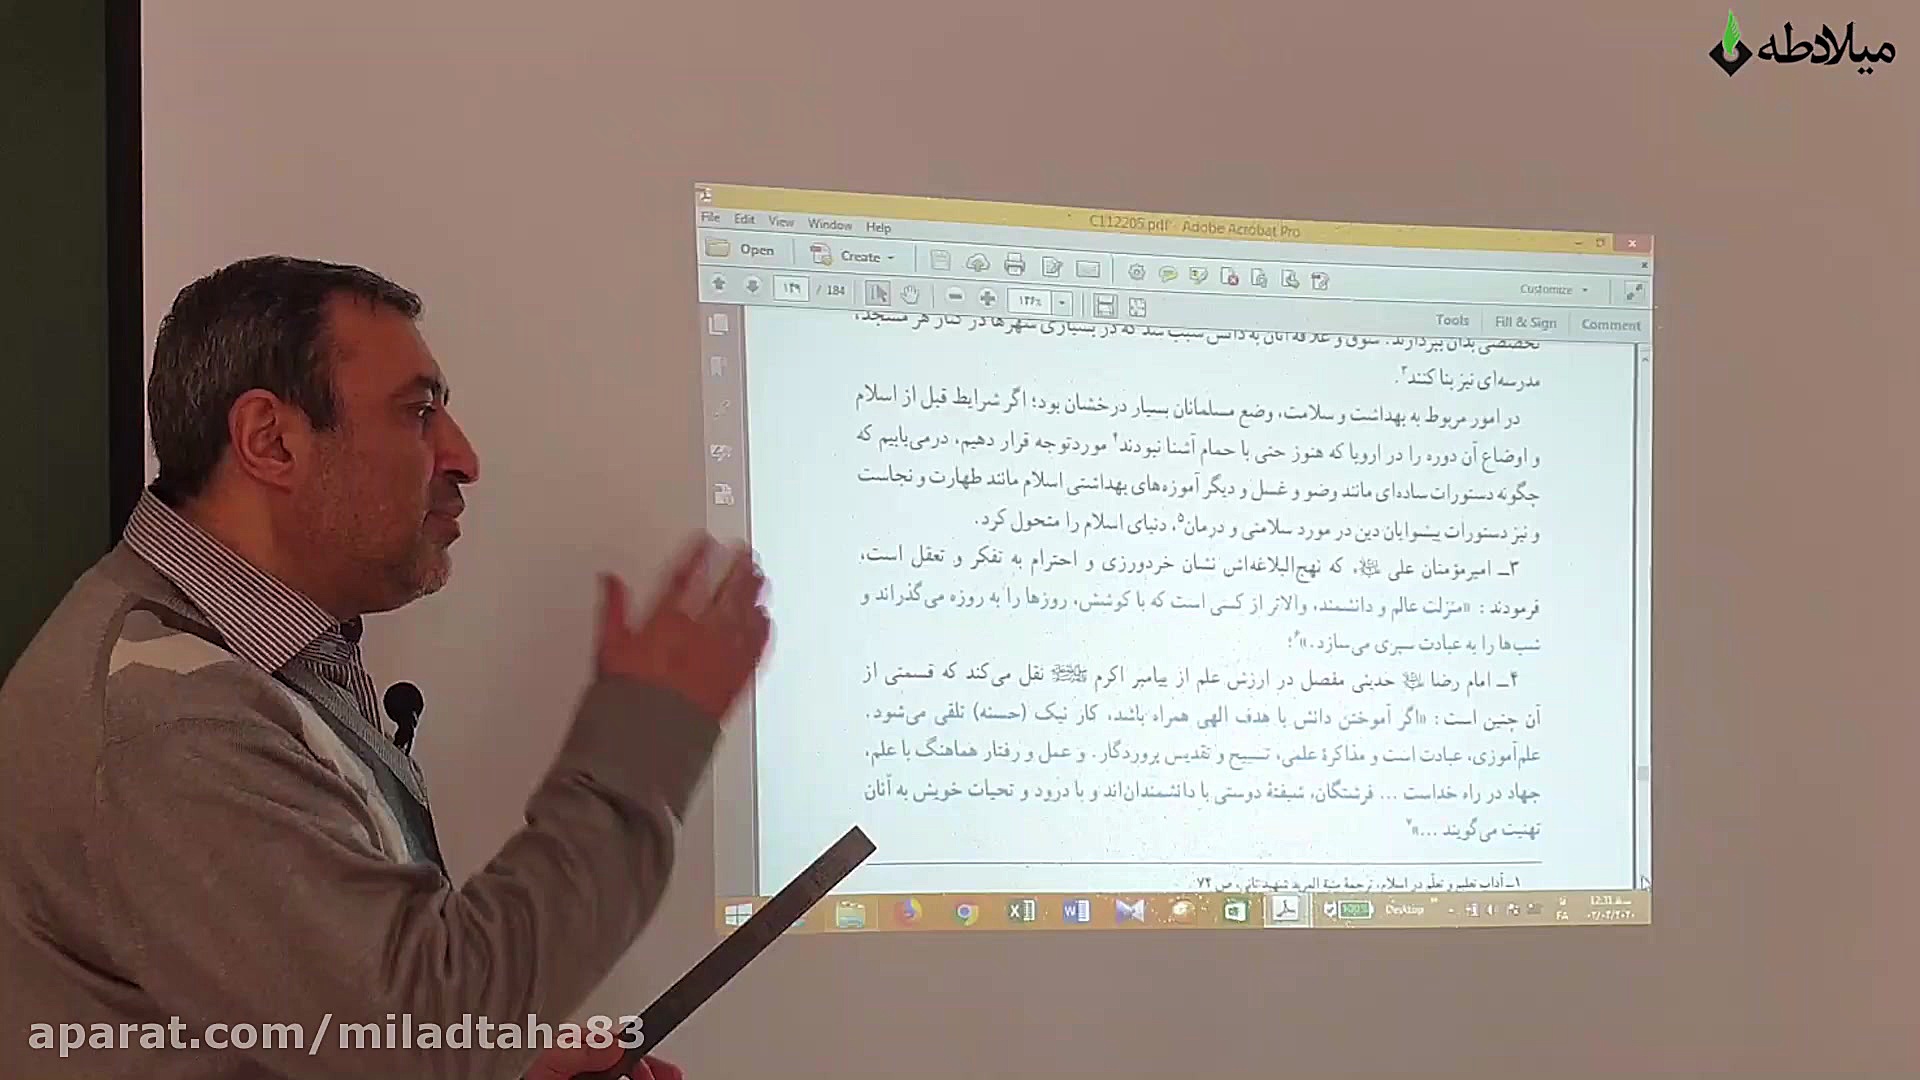 میلادطه
C112205.pdf - Adobe Acrobat Pro
File Edit View Window Help
Open Create Customize
۱۳۹ / 184 ۱۳۶٪
Tools Fill & Sign Comment
تخصصی بدان بپردازند. شوق و علاقه آنان به دانش سبب شد که در بسیاری شهرها در کنار هر مسجد،
مدرسه‌ای نیز بنا کنند۳.
در امور مربوط به بهداشت و سلامت، وضع مسلمانان بسیار درخشان بود؛ اگر شرایط قبل از اسلام
و اوضاع آن دوره را در اروپا که هنوز حتی با حمام آشنا نبودند۴ موردتوجه قرار دهیم، درمی‌یابیم که
چگونه دستورات ساده‌ای مانند وضو و غسل و دیگر آموزه‌های بهداشتی اسلام مانند طهارت و نجاست
و نیز دستورات پیشوایان دین در مورد سلامتی و درمان۵، دنیای اسلام را متحول کرد.
۳ــ امیرمؤمنان علی ﷷ، که نهج‌البلاغه‌اش نشان خردورزی و احترام به تفکر و تعقل است،
فرمودند: «منزلت عالم و دانشمند، والاتر از کسی است که با کوشش، روزها را به روزه می‌گذراند و
شب‌ها را به عبادت سپری می‌سازد.»۶؛
۴ــ امام رضا حدیثی مفصل در ارزش علم از پیامبر اکرم ﷺ نقل می‌کند که قسمتی از
آن چنین است: «اگر آموختن دانش با هدف الهی همراه باشد، کار نیک (حسنه) تلقی می‌شود.
علم‌آموزی، عبادت است و مذاکرهٔ علمی، تسبیح و تقدیس پروردگار. و عمل و رفتار هماهنگ با علم،
جهاد در راه خداست ... فرشتگان، شیفتهٔ دوستی با دانشمندان‌اند و با درود و تحیات خویش به آنان
تهنیت می‌گویند ...»۷
۱ــ آداب تعلیم و تعلّم در اسلام، ترجمهٔ منیة المرید شهید ثانی، ص ۷۴
100% Desktop FA 12:31
aparat.com/miladtaha83